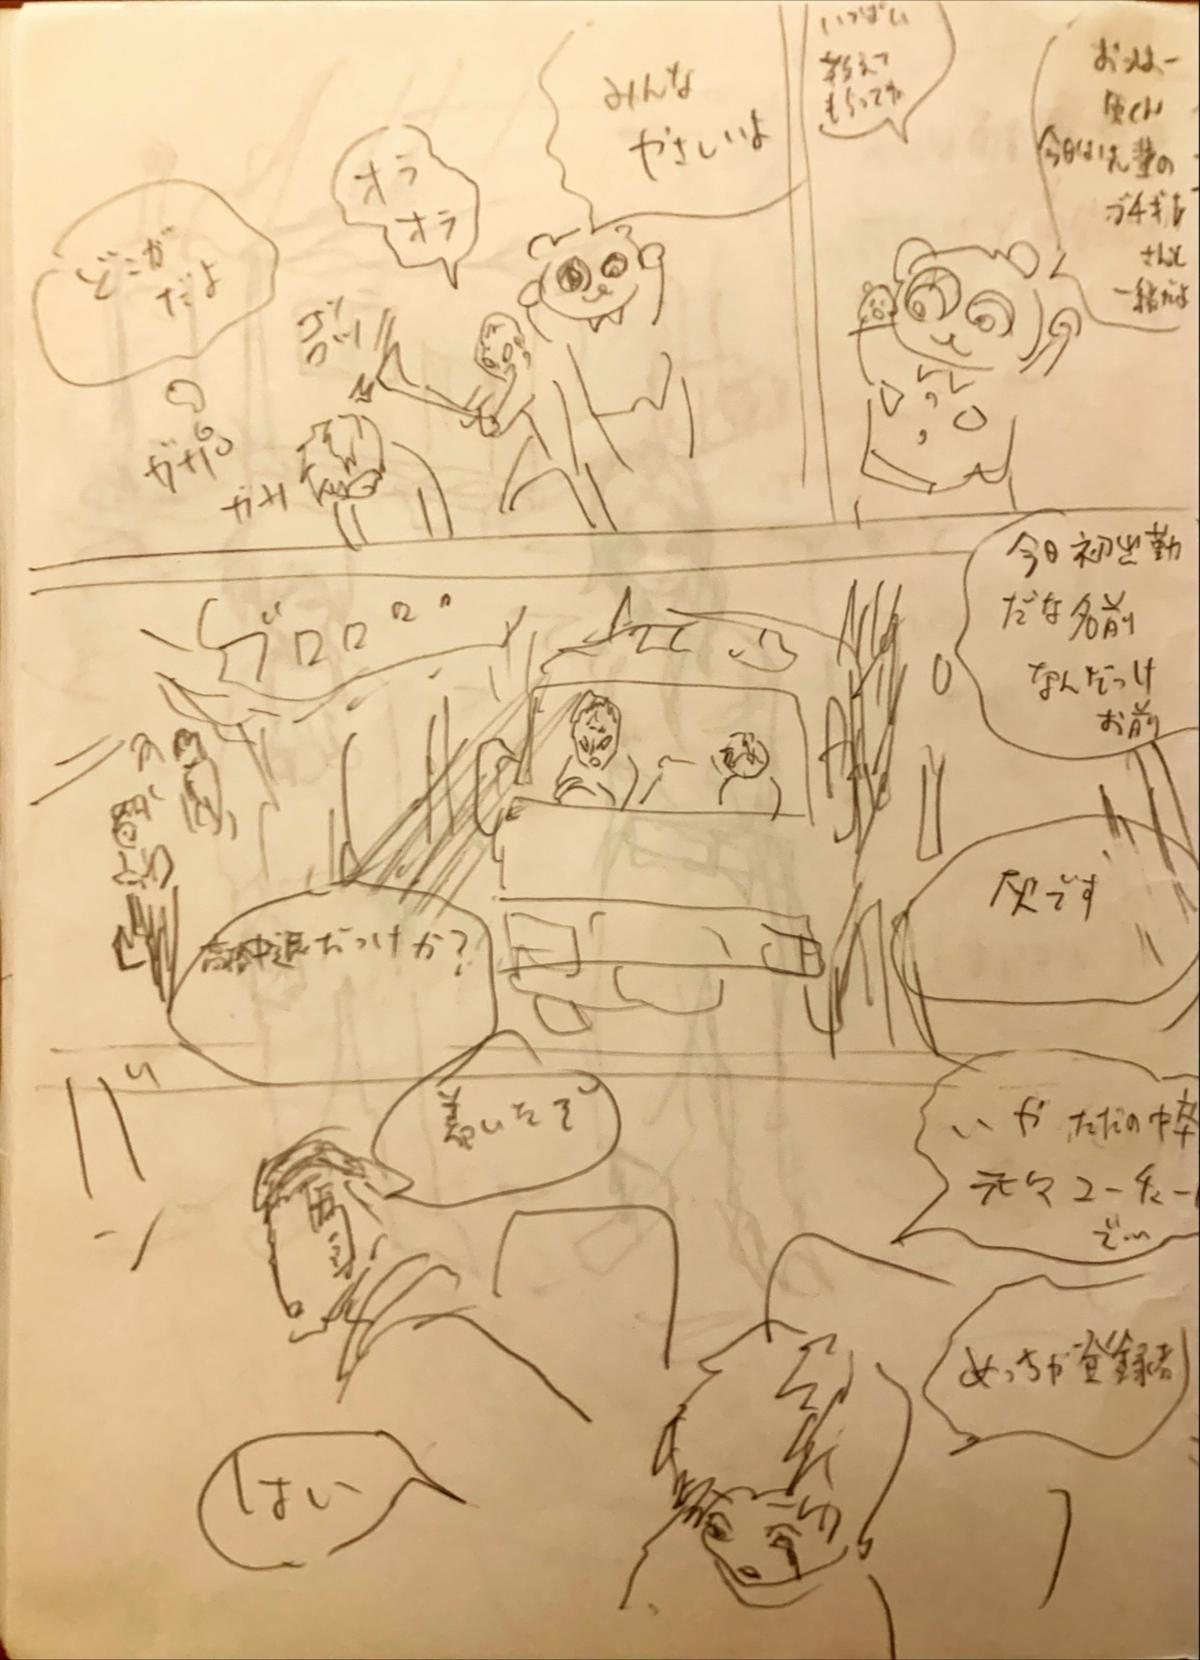 おはー
灰くん
今日は先輩の
ブチギレ
さんと
一緒だよ
いっぱい
教えて
もらってね
みんな
やさしいよ
オラ
オラ
ゴッ
どこが
だよ
ガサ
ガサ
今日初出勤
だな名前
なんだっけ
お前
ブロロロ
灰です
高校中退だっけか?
いや ただの中卒
元々ユーチュー
で…
めっちゃ登録者
着いたぞ
バン
はい